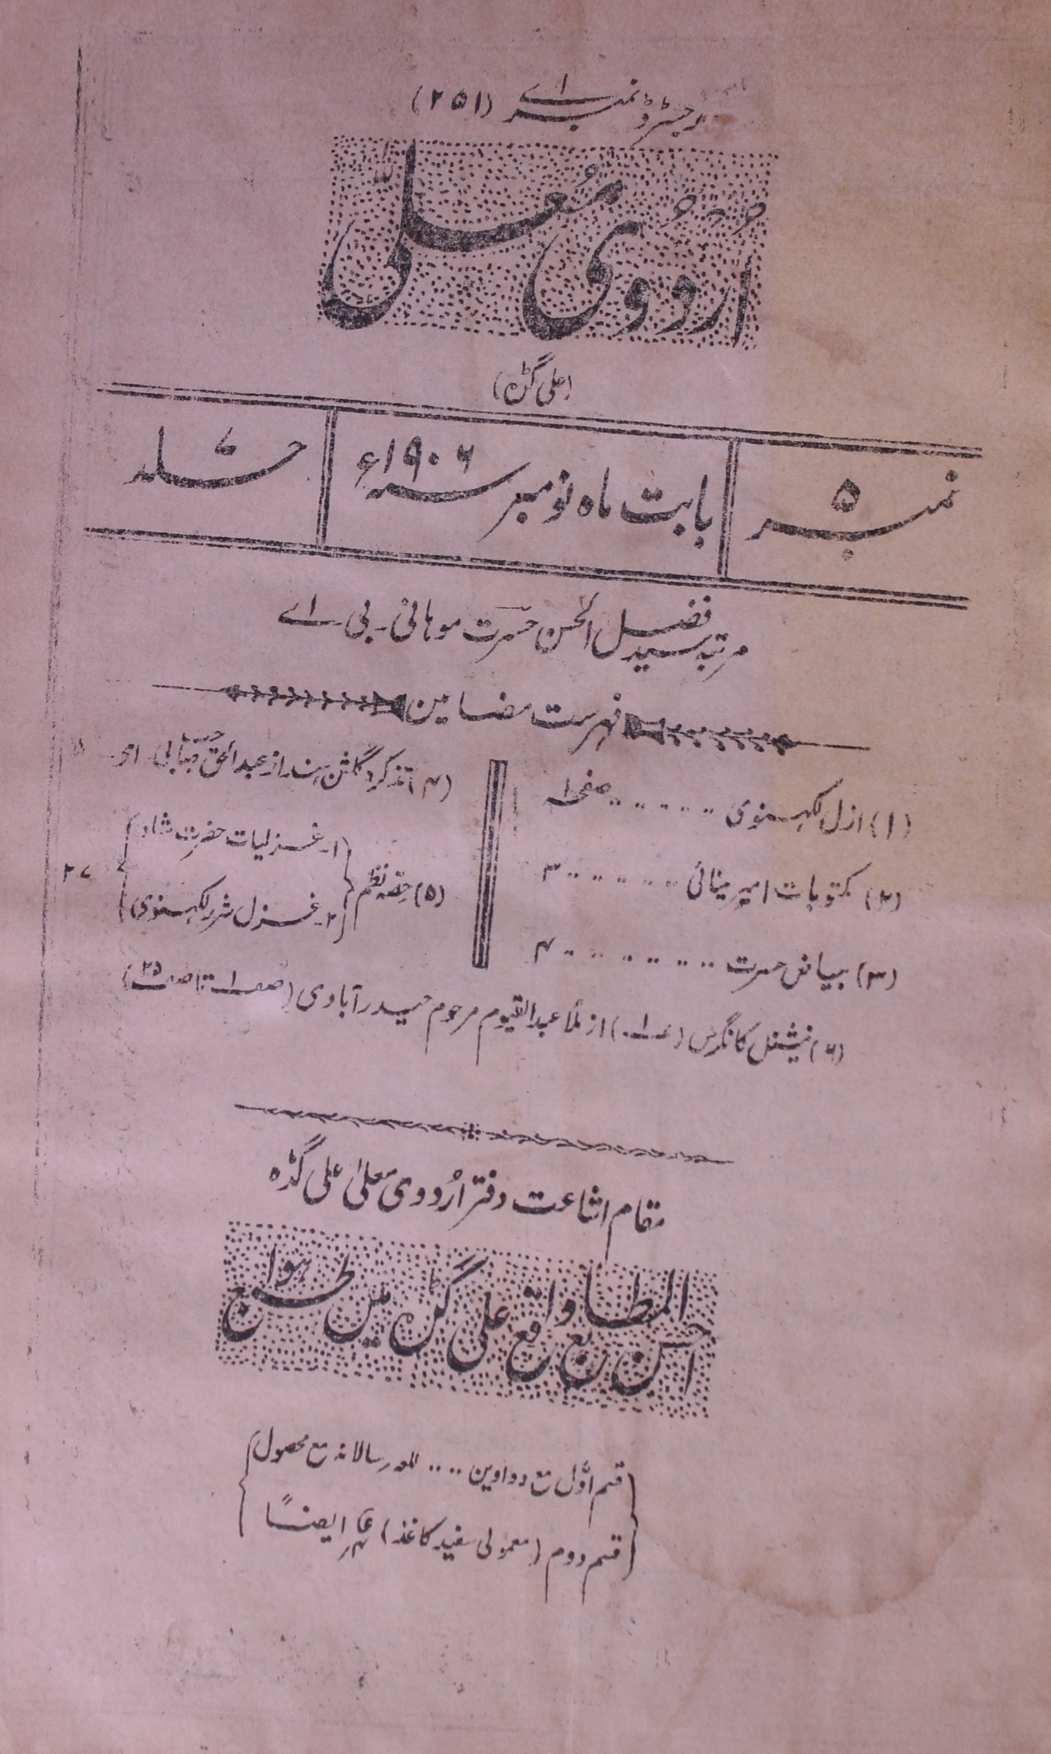 رجسٹرڈ نمبر اے (۲۵۱)
اُردُوی مُعلیٰ
(علی گڑہ)
نمبر ۵
بابت ماہ نومبر سنہ ۱۹۰۶ء
جلد ۷
مرتبہ سید فضل الحسن حسرت موہانی۔ بی۔ اے
فہرست مضامین
(۱) ازل لکہنوی ...... صفحہ ۱
(۲) مکتوبات امیر مینائی ...... ۳
(۳) بیاض حسرت ........ ۴
(۴) تذکرہ گلشن ہند از عبدالحق صاحب بی۔ اے۔ ۵
(۵) حصہ نظم
۱۔ غزلیات حضرت شاد
۲۔ غزل شرر لکہنوی
۲۷
(۶) نیشنل کانگرس (۔۔۱۔۔) از ملا عبدالقیوم مرحوم حیدرآبادی (صفحہ ۱ تا صفحہ ۲۵)
مقام اشاعت دفتر اُردوی معلیٰ علی گڈہ
احسن المطابع واقع علی گڑہ میں طبع ہوا
قسم اوّل مع دواوین .... للعہ سالانہ مع محصول
قسم دوم (معمولی سفید کاغذ) ایضاً